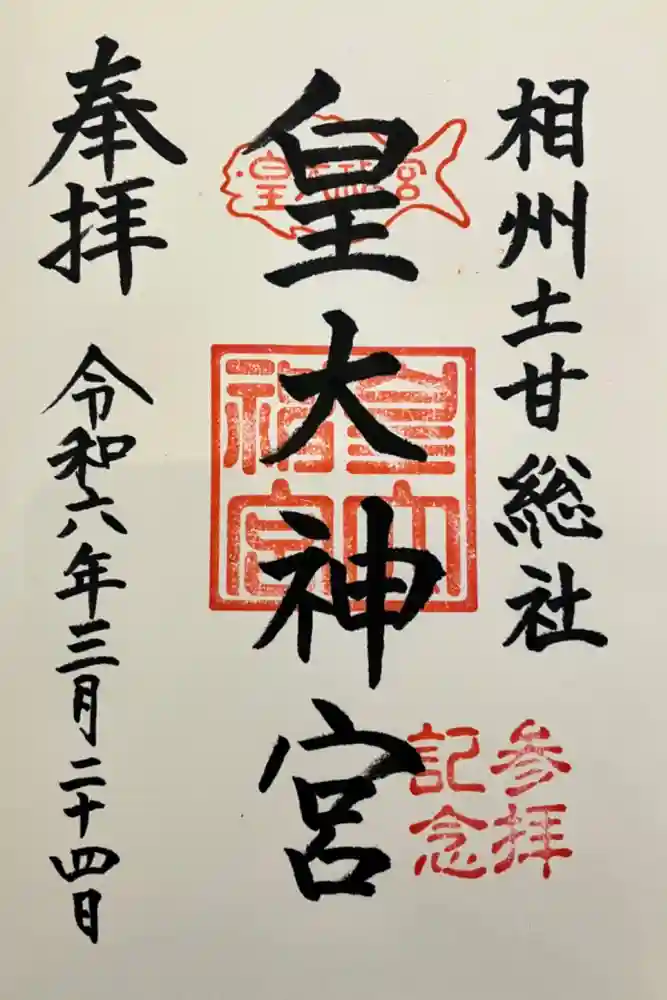 相州土甘総社
皇大神宮
奉拝
令和六年三月二十四日
皇大神宮
皇大神宮
参拝
記念